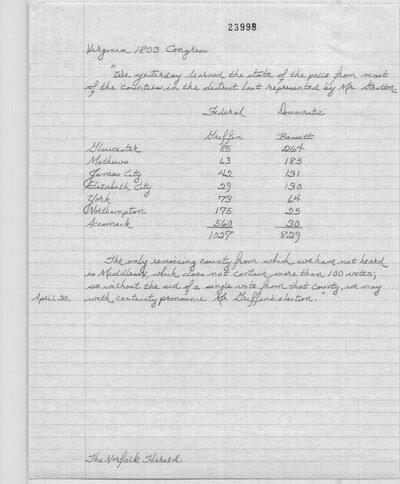 23998
Virginia 1803 Congress
"We yesterday learned the state of the polls from most
of the counties in the district last represented by Mr. Stratton.
Federal Democratic
Griffin Bassett
Gloucester 85 264
Mathews 63 185
James City 42 131
Elizabeth City 29 130
York 73 64
Northampton 175 25
Accomack 560 30
1027 829
The only remaining county from which we have not heard
is Middlesex, which does not contain more than 100 votes;
so without the aid of a single vote from that County, we may
April 30. with certainty pronounce Mr. Griffin's election."
The Norfolk Herald.